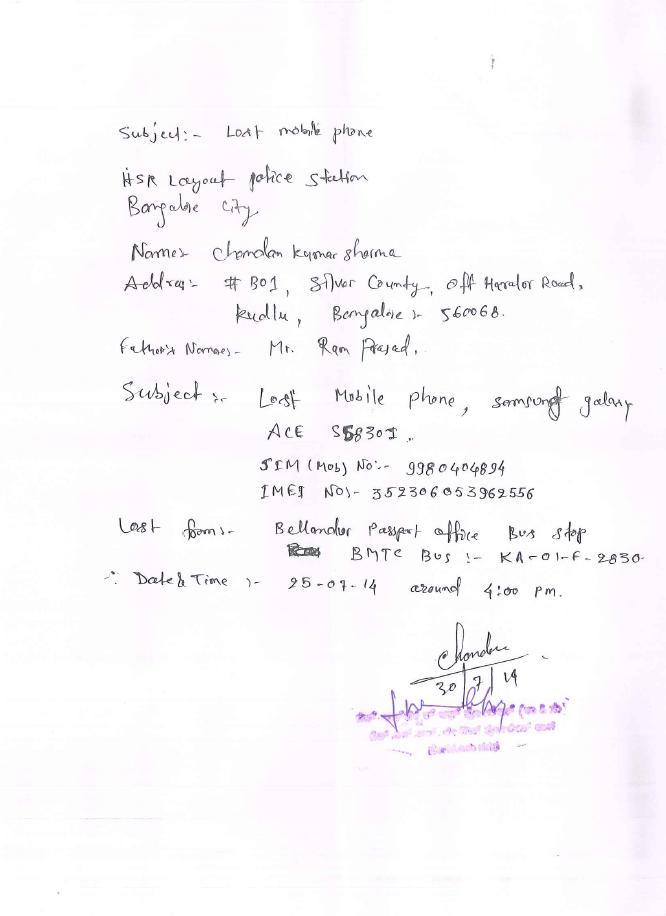 Subject:- Lost mobile phone
HSR Layout police station
Bangalore City
Name:- Chandan kumar sharma
Address:- # B01, Silver County, Off Haralor Road,
kudlu, Bangalore :- 560068.
Father's Name:- Mr. Ram Prasad.
Subject :- Lost Mobile phone, samsung galaxy
ACE S5830I.
SIM (Mob) No:- 9980404894
IMEI NO:- 352306053962556
Lost from:- Bellandur Passport office Bus stop
BMTC BUS :- KA-01-F-2830.
∴ Date & Time :- 25-07-14 around 4:00 PM.
Chandan
30/7/14